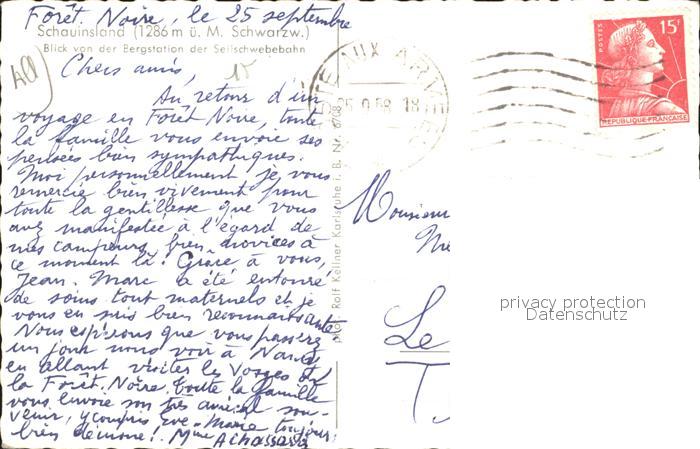 Forêt. Noire, le 25 septembre
Schauinsland (1286 m ü. M. Schwarzw.)
Blick von der Bergstation der Seilschwebebahn
Chers amis,
Au retour d'un
voyage en Forêt Noire, toute
la famille vous envoie ses
pensées bien sympathiques.
Moi personnellement je vous
remercie bien vivement pour
toute la gentillesse que vous
avez manifestée à l'égard de
mes campeurs, bien novices à
ce moment là. Grâce à vous,
Jean. Marc a été entouré
de soins tout maternels et je
vous en suis bien reconnaissante.
Nous espérons que vous passerez
un jour nous voir à
en allant visiter les Vosges et
la Forêt. Noire. Toute la famille
vous envoie son très amical sou-
venir, y compris Eve-Marie toujours
bien démone! Mme
Photo Rolf Kellner Karlsruhe i. B. Nr.
25.9.58 18H
POSTES
15F
REPUBLIQUE FRANÇAISE
Monsieur
Me
Le
T.
privacy protection
Datenschutz